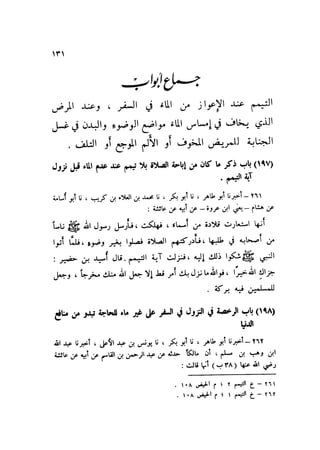 ١٣١
جماع أبواب
التيمم عند الإعواز من الماء في السفر ، وعند المرض
الذي يخاف في إمساس الماء مواضع الوضوء والبدن في غسل
الجنابة للمريض المخوف أو الألم الموجع أو التلف .
(١٩٧) باب ذكر ما كان من إباحة الصلاة بلا تيمم عند عدم الماء قبل نزول
آية التيمم .
٢٦١ – أخبرنا أبو طاهر ، نا أبو بكر ، نا محمد بن العلاء بن كريب ، نا أبو أسامة
عن هشام – يعني ابن عروة – عن أبيه عن عائشة :
أنها استعارت قلادة من أسماء ، فهلكت ، فأرسل رسول الله ﷺ ناساً
من أصحابه في طلبها ، فأدركتهم الصلاة فصلوا بغير وضوء ، فلما أتوا
النبي ﷺ شكوا ذلك إليه ، فنزلت آية التيمم . قال أسيد بن حضير :
جزاك الله خيراً ، فوالله ما نزل بك أمر قط إلا جعل الله منك مخرجاً ، وجعل
للمسلمين فيه بركة .
(١٩٨) باب الرخصة في النزول في السفر على غير ماء للحاجة تبدو من منافع
الدنيا
٢٦٢ – أخبرنا أبو طاهر ، نا أبو بكر ، نا يونس بن عبد الأعلى ، أخبرنا عبد الله
ابن وهب بن مسلم ، أن مالكاً حدثه عن عبد الرحمن بن القاسم عن أبيه عن عائشة
رضي الله عنها (٣٨ ب) أنها قالت :
٢٦١ – خ التيمم ٢ ؛ م الحيض ١٠٨ .
٢٦٢ – خ التيمم ١ ؛ م الحيض ١٠٨ .